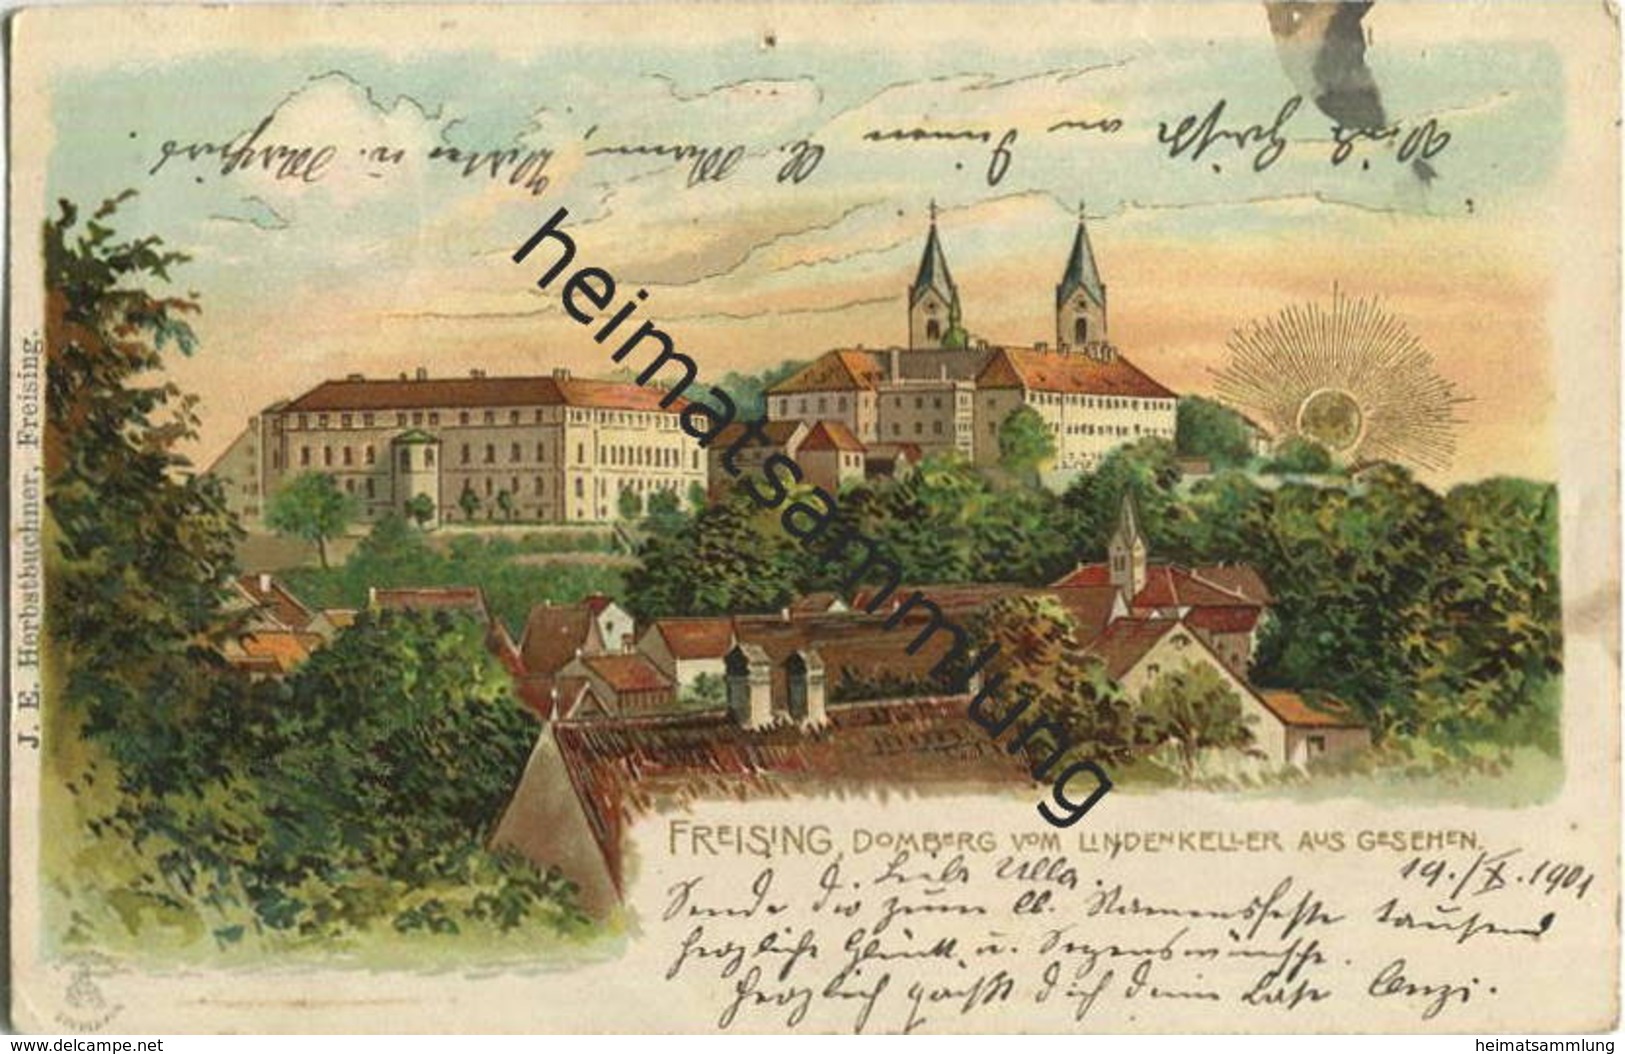 J. E. Herbstbuchner, Freising.
heimatsammlung
FREISING, DOMBERG VOM LINDENKELLER AUS GESEHEN.
19./X.1901
Liebe Ulla.
Sende Dir zum lb. Namensfeste tausend
herzliche Glück u. Segenswünsche.
Herzlich grüßt Dich Deine Enzi.
Viele Grüße an Deinen l. Mann, Walter u.
www.delcampe.net
heimatsammlung